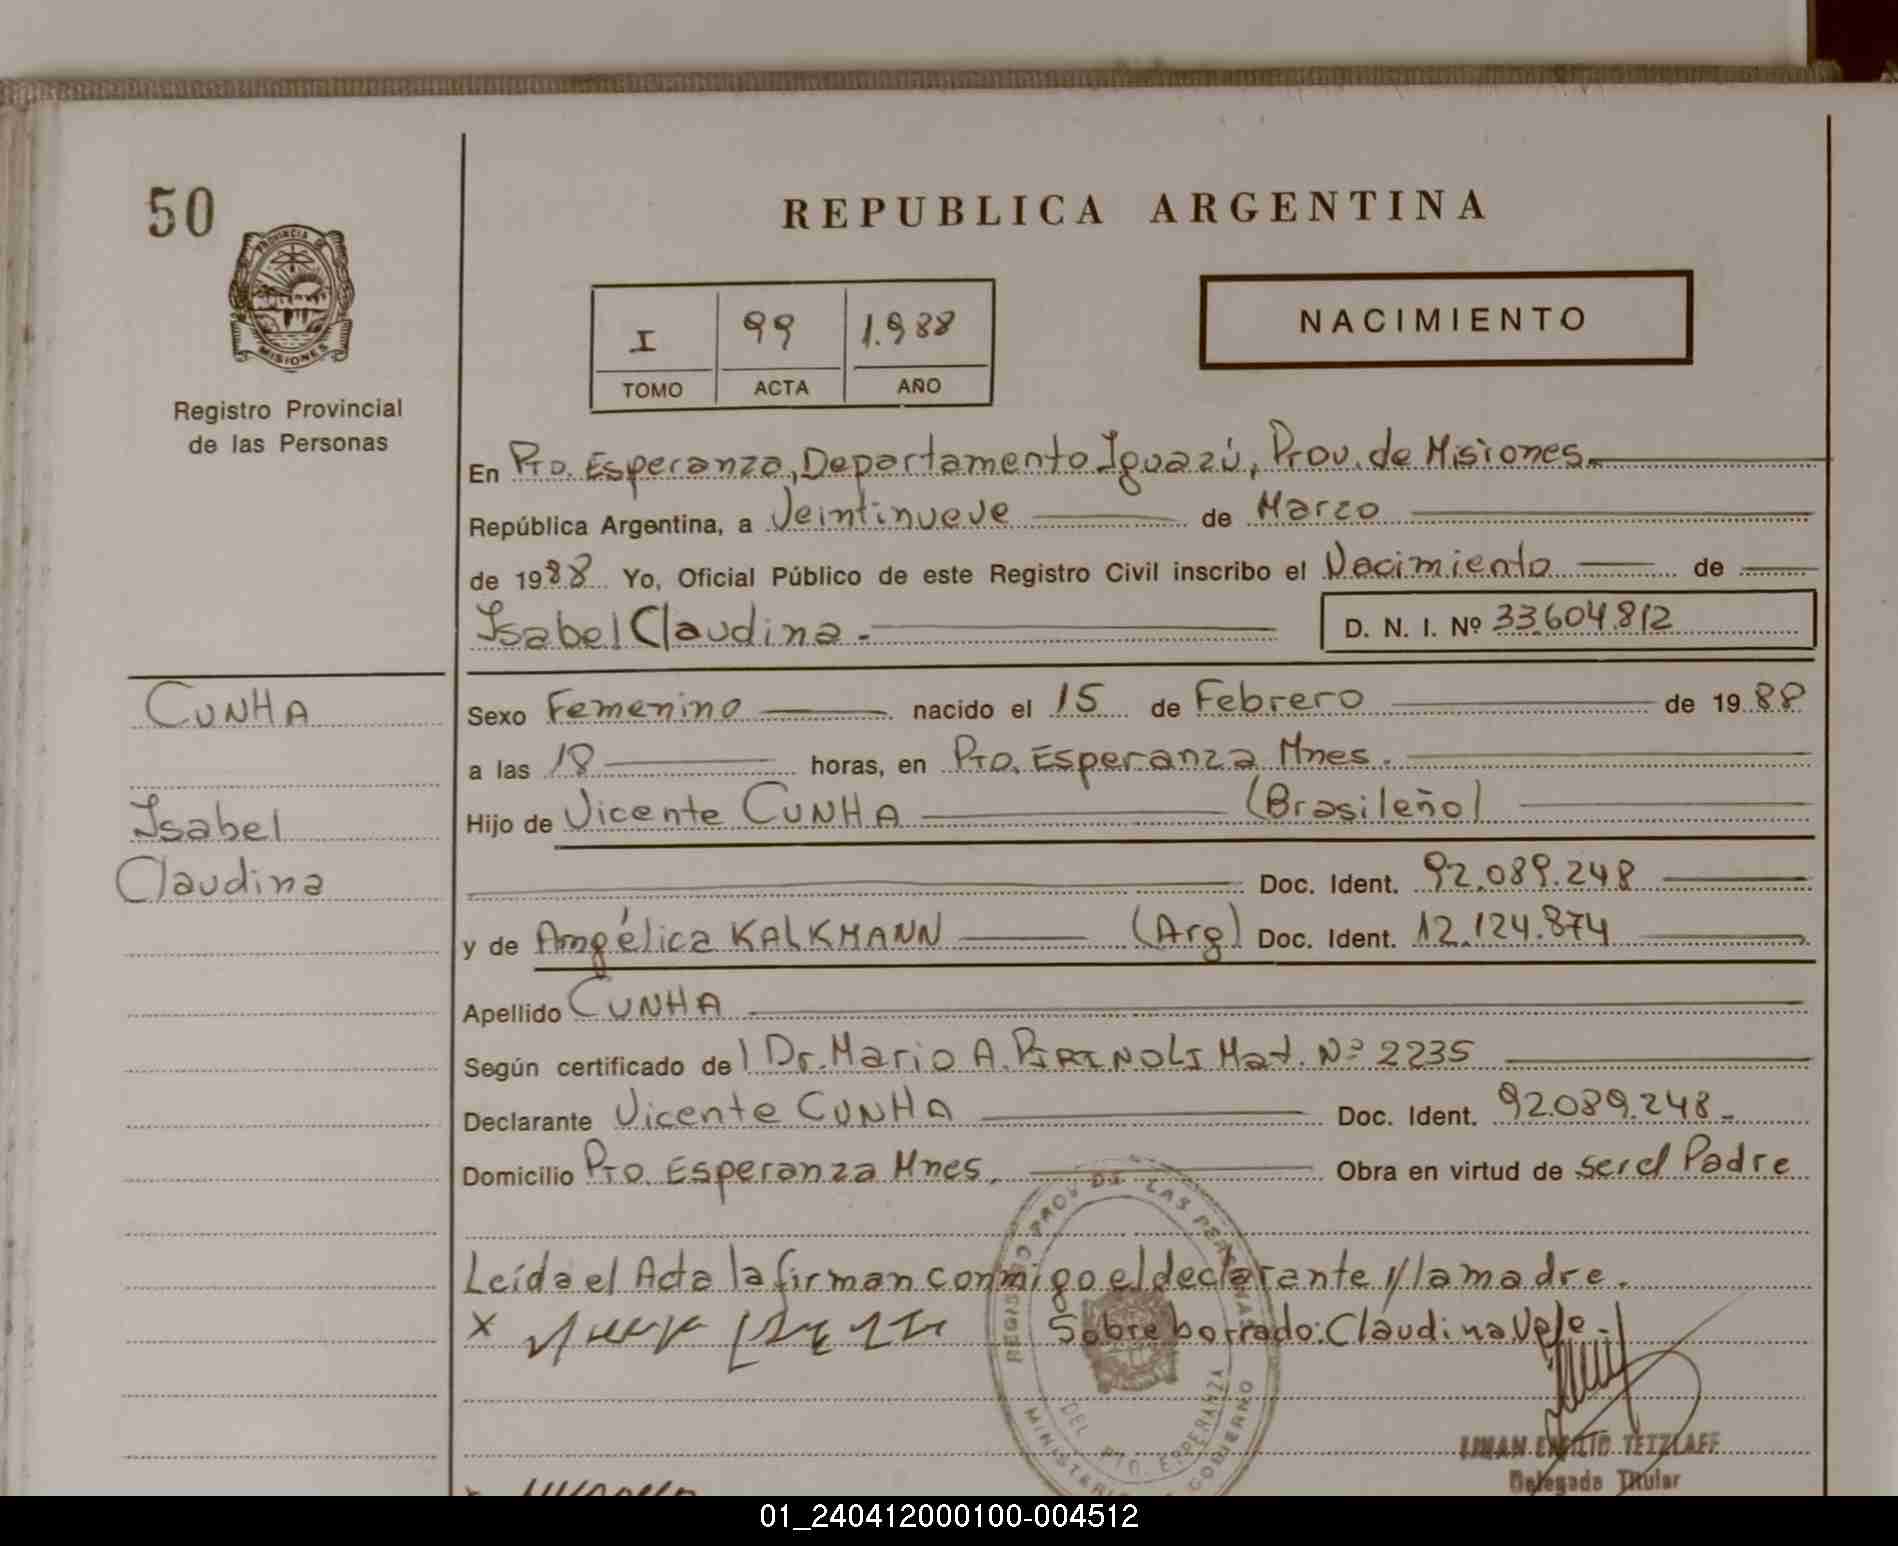 50
PROVINCIA DE
MISIONES
Registro Provincial
de las Personas
REPUBLICA ARGENTINA
I 99 1.988
TOMO ACTA AÑO
NACIMIENTO
En Pto. Esperanza, Departamento Iguazú, Prov. de Misiones.
República Argentina, a Veintinueve de Marzo
de 1988 Yo, Oficial Público de este Registro Civil inscribo el Nacimiento de
Isabel Claudina.- D. N. I. Nº 33.604.812
CUNHA
Isabel
Claudina
Sexo Femenino nacido el 15 de Febrero de 1988
a las 18 horas, en Pto. Esperanza Mnes.
Hijo de Vicente CUNHA (Brasileño)
Doc. Ident. 92.089.248
y de Angélica KALKMANN (Arg) Doc. Ident. 12.124.874
Apellido CUNHA
Según certificado de l Dr. Mario A. PIRINOLI Mat. Nº 2235
Declarante Vicente CUNHA Doc. Ident. 92.089.248.-
Domicilio Pto. Esperanza Mnes. Obra en virtud de ser el Padre
Leída el Acta la firman conmigo el declarante y la madre.
x Sobre borrado: Claudina Vale.-
REGISTRO PROV DE LAS PERSONAS
DEL PTO. ESPERANZA
MINISTERIO DE GOBIERNO
EMILIO TETZLAFF
Delegado Titular
01_240412000100-004512